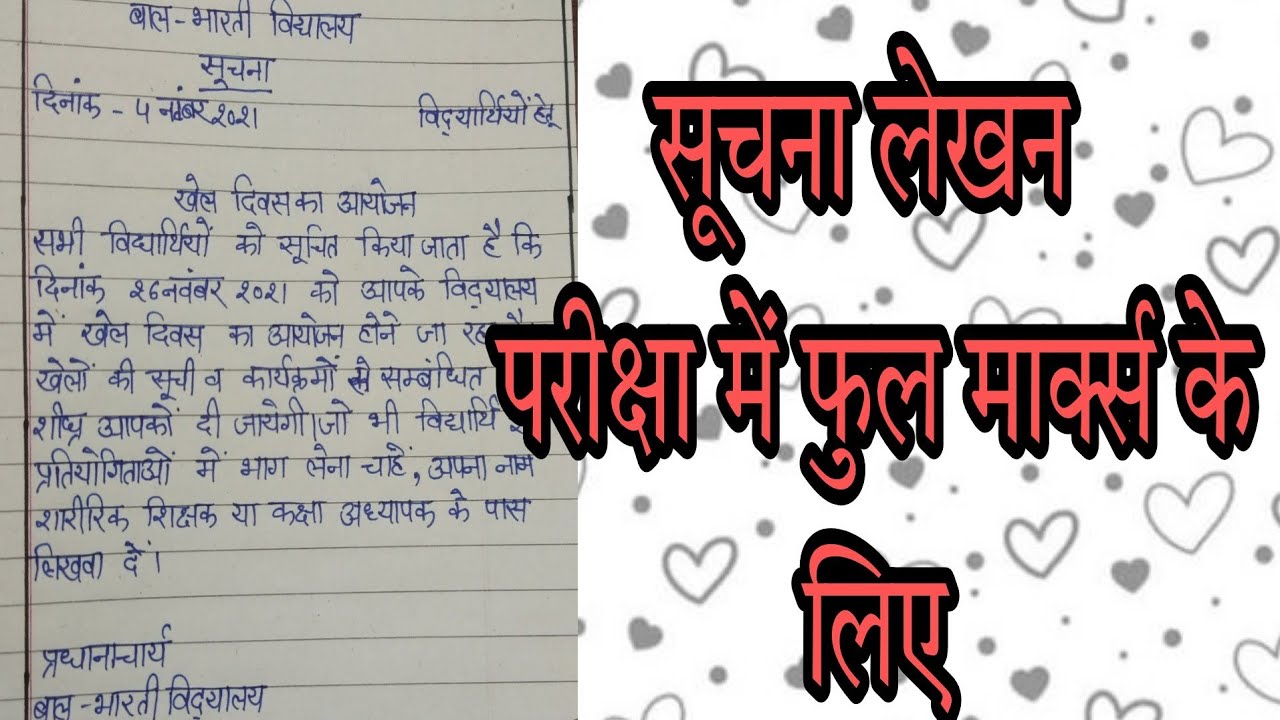 बाल-भारती विद्यालय
सूचना
दिनांक - 4 नवंबर २०२१
विद्यार्थियों हेतू
खेल दिवस का आयोजन
सभी विद्यार्थियों को सूचित किया जाता है कि
दिनांक २६ नवंबर २०२१ को आपके विद्यालय
में खेल दिवस का आयोजन होने जा रहा है
खेलों की सूची व कार्यक्रमों से सम्बंधित
शीघ्र आपकों दी जायेगी। जो भी विद्यार्थि
प्रतियोगिताओं में भाग लेना चाहें, अपना नाम
शारीरिक शिक्षक या कक्षा अध्यापक के पास
लिखवा दें।
प्रधानाचार्य
बाल-भारती विद्यालय
सूचना लेखन
परीक्षा में फुल मार्क्स के
लिए